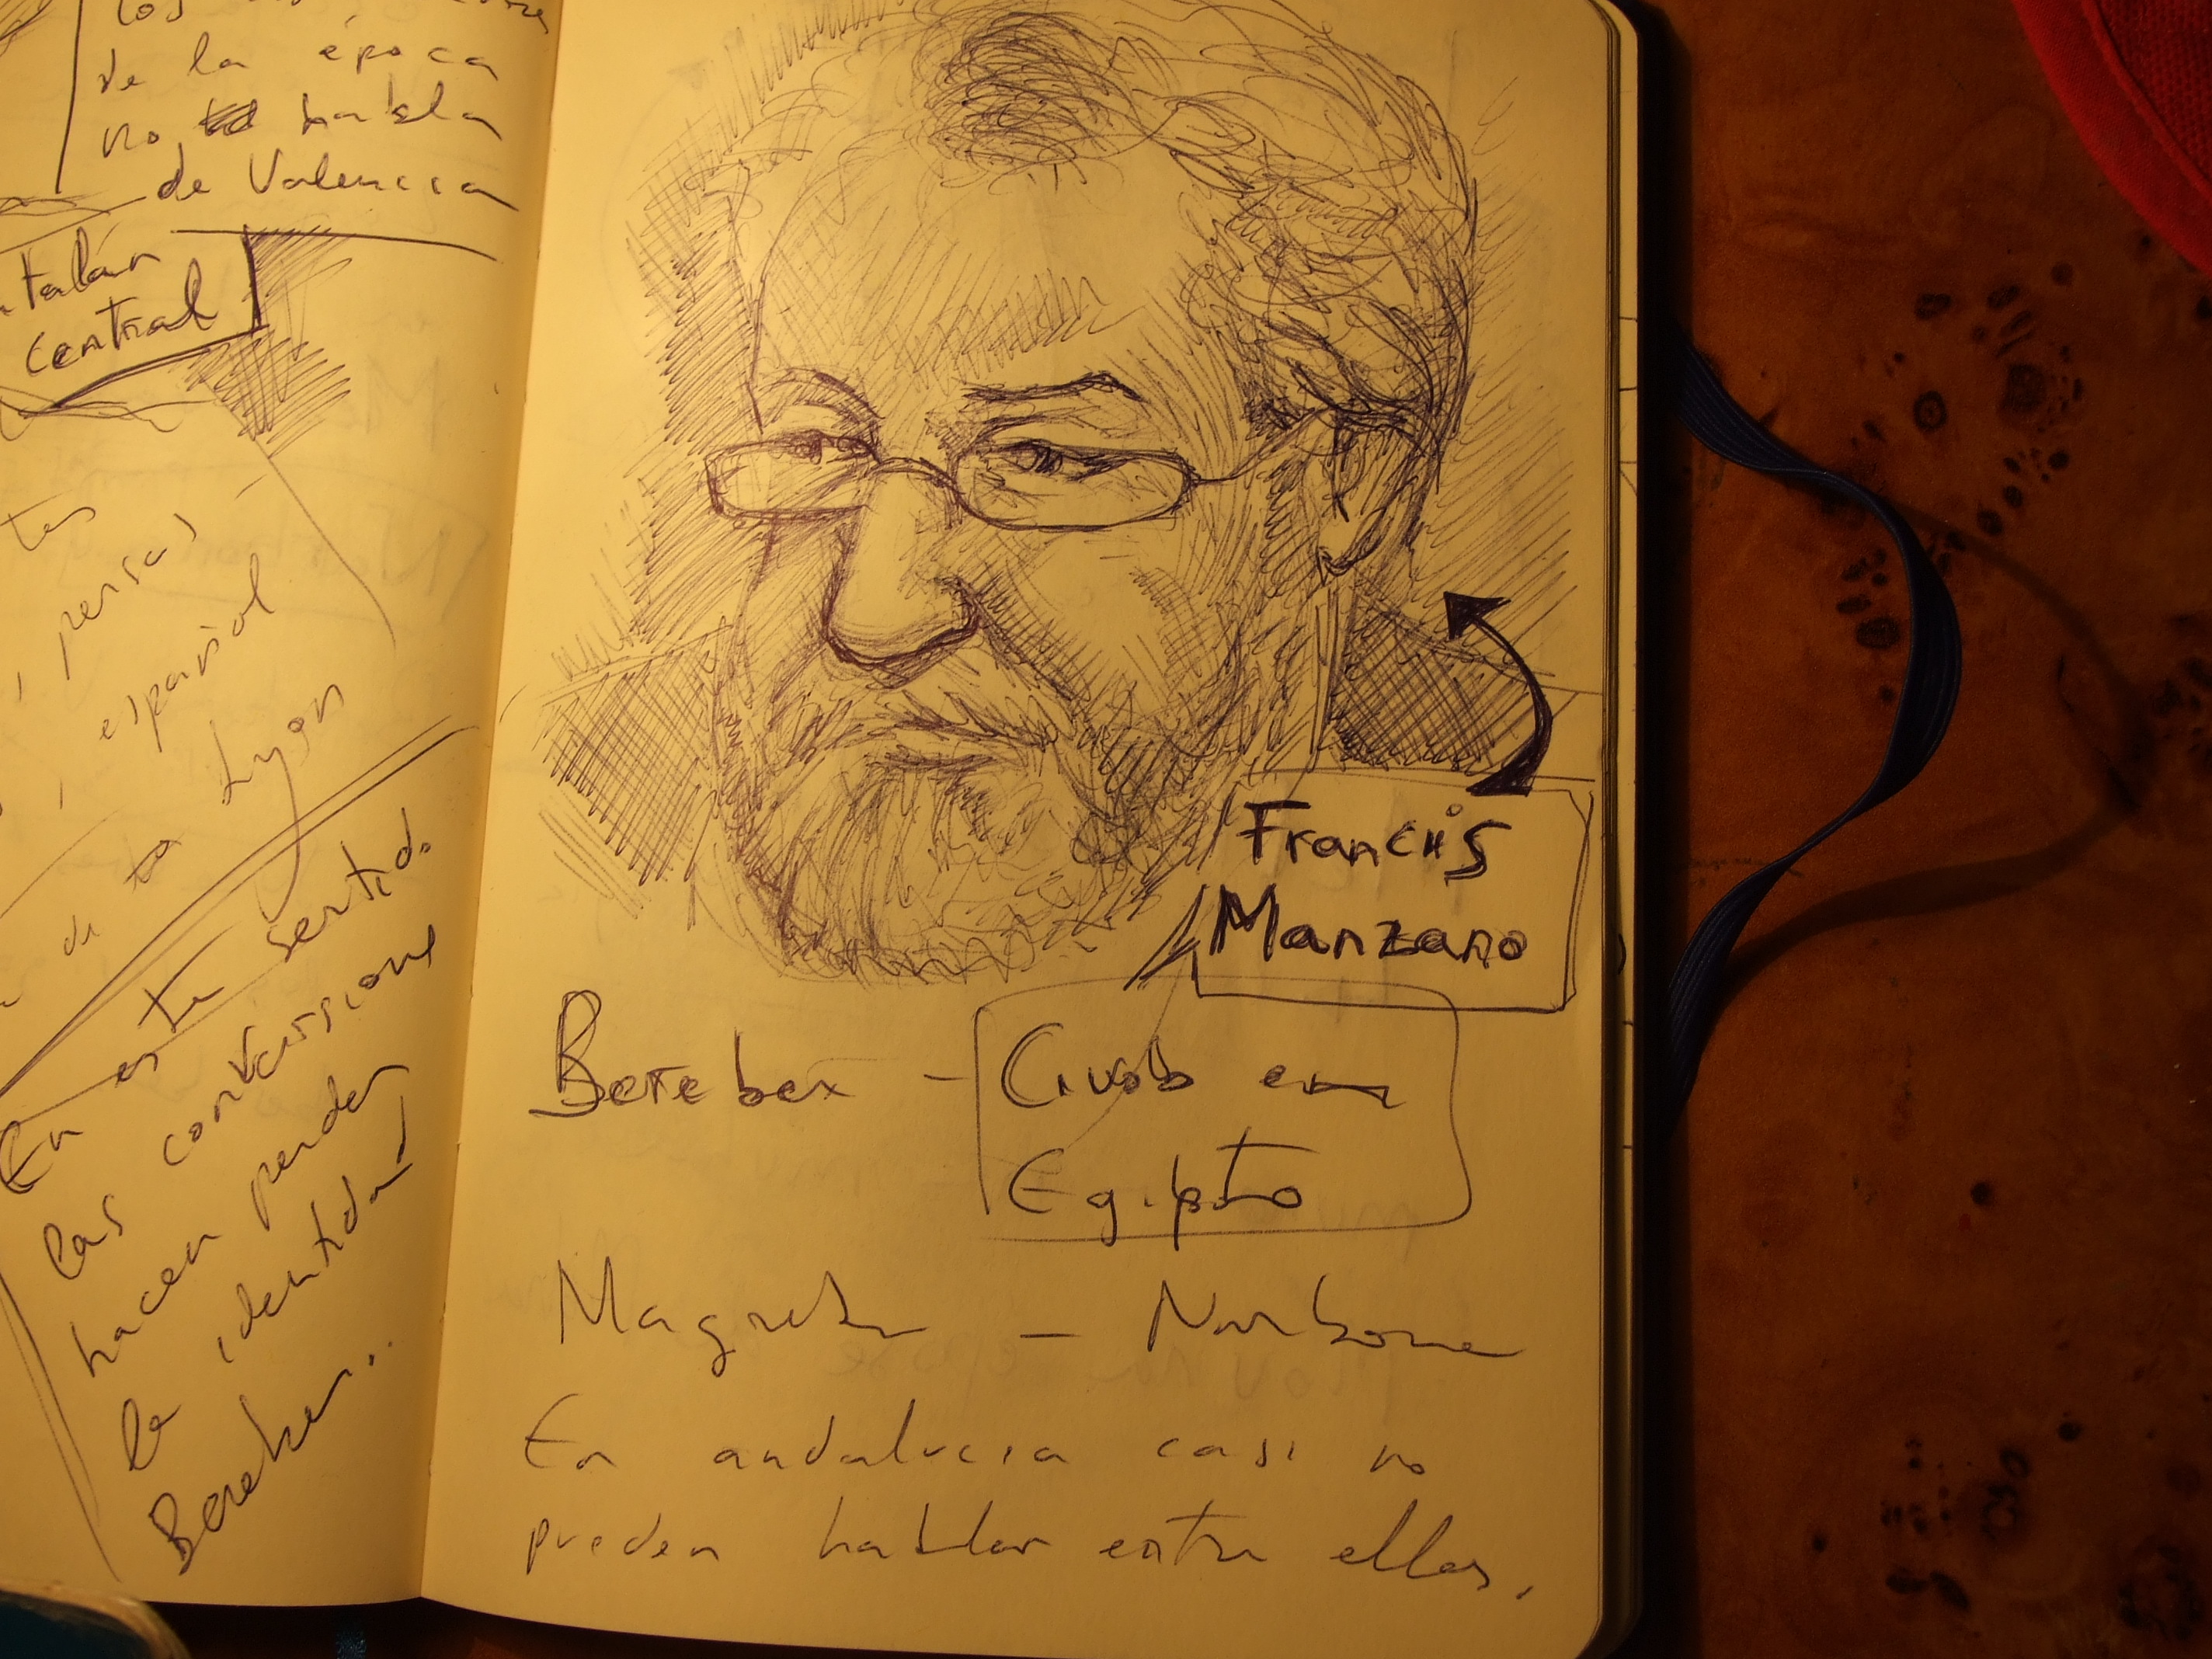 de la época
no habla
de Valencia
Catalán
central
persas
español
Lyon
de
En este sentido
las conversiones
hacen perder
la identidad
Bereber...
Francis
Manzano
Bereber -
en
Egipto
Magreb - Narbone
En andalucia casi no
pueden hablar entre ellos.